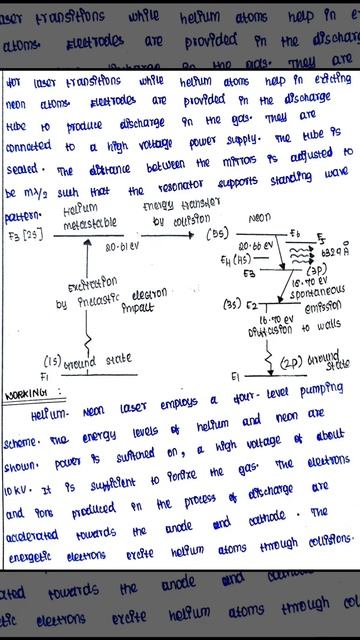 aser transitions while helium atoms help in e
atoms. Electrodes are provided in the dischar
in the gas. They are
for laser transitions while helium atoms help in exicting
neon atoms. Electrodes are provided in the discharge
tube to produce discharge in the gas. They are
connected to a high voltage power supply. The tube is
sealed. The distance between the mirrors is adjusted to
be mλ/2 such that the resonator supports standing wave
pattern.
Helium metastable
Energy transfer by collision
Neon
F3 [2S]
20.61 eV
(5S)
E6
20.66 eV
E4 (4S)
6329 Å
E3
(3p)
18.70 eV
spontaneous emission
(3S) E2
16.70 eV
Diffusion to walls
Excitation
by Inelastic electron
impact
(1S) Ground state
F1
(2p) Ground state
E1
WORKING :
Helium- Neon laser employs a four-level pumping
scheme. The energy levels of helium and neon are
shown. Power is switched on, a high voltage of about
10 kV. It is sufficient to Ionize the gas. The electrons
and ions produced in the process of discharge are
accelerated towards the anode and cathode. The
energetic electrons excite helium atoms through collisions.
ated towards the anode and
etic electrons excite helium atoms through col